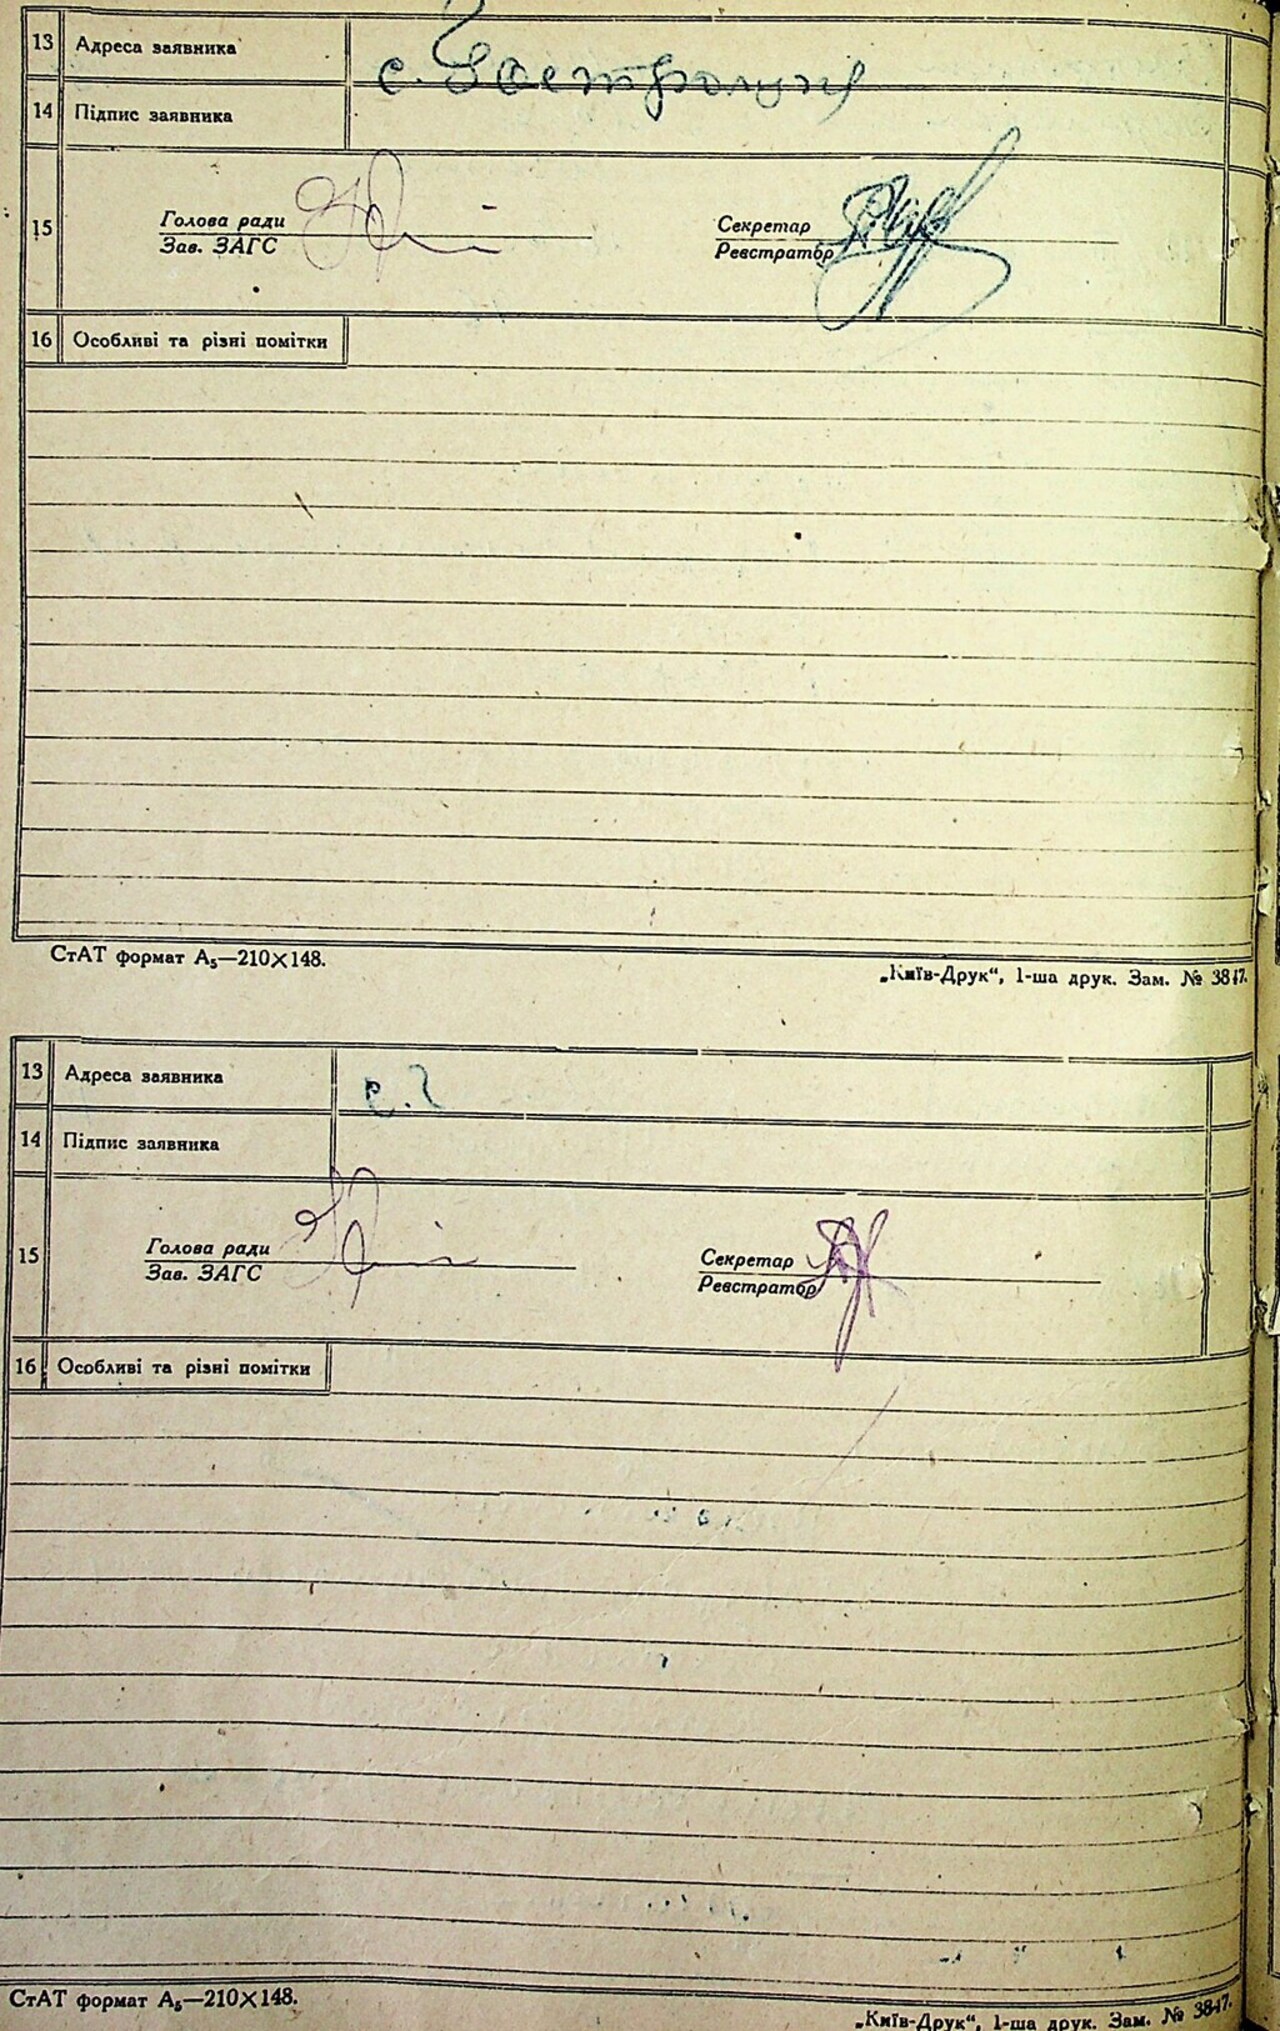 13 Адреса заявника с. Гостролуччя
14 Підпис заявника
15 Голова ради Секретар
Зав. ЗАГС Реєстратор
16 Особливі та різні помітки
СтАТ формат А₅—210×148.
„Київ-Друк“, 1-ша друк. Зам. № 3847.
13 Адреса заявника с. Г
14 Підпис заявника
15 Голова ради Секретар
Зав. ЗАГС Реєстратор
16 Особливі та різні помітки
СтАТ формат А₅—210×148.
„Київ-Друк“, 1-ша друк. Зам. № 3847.